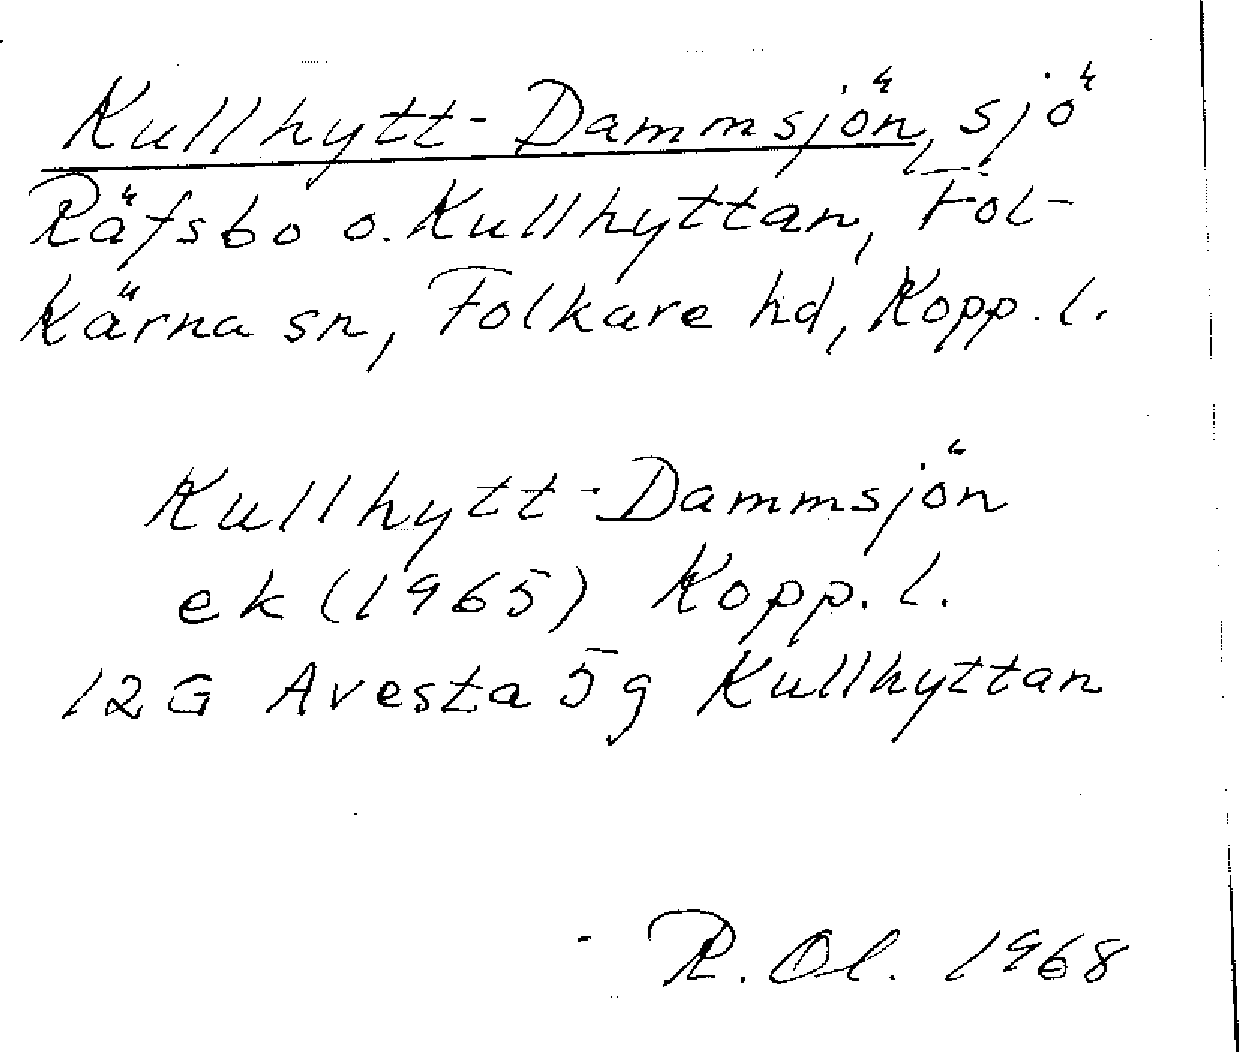 Kullhytt-Dammsjön, sjö
Räfsbo o. Kullhyttan, Fol-
kärna sn, Folkare hd, Kopp. l.
Kullhytt-Dammsjön
ek (1965) Kopp. l.
12G Avesta 5g Kullhyttan
R. Ol. 1968